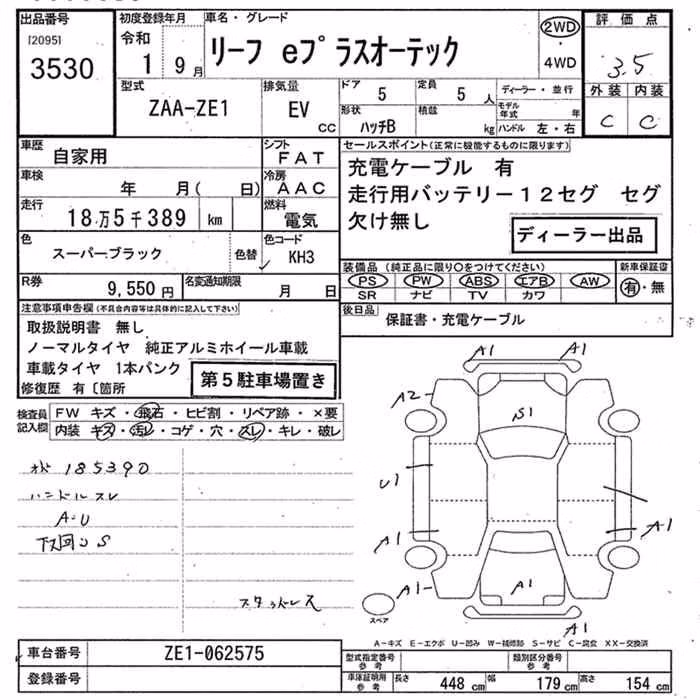 出品番号
[2095]
3530
初度登録年月
令和
1 9月
車名・グレード
リーフ eプラスオーテック
2WD
・
4WD
評価点
3.5
外装 内装
C C
型式
ZAA-ZE1
排気量
EV
CC
ドア
5
定員
5 人
形状
ハッチB
積載
kg
ディーラー・並行
モデル年式 年
ハンドル 左・右
車歴
自家用
シフト
FAT
車検
年 月( 日)
冷房
AAC
走行
18万5千389 km
燃料
電気
色
スーパーブラック
色替
色コード
KH3
R券
9,550円
名変通知期限
月 日
セールスポイント(正常に機能するものに限ります)
充電ケーブル 有
走行用バッテリー12セグ セグ
欠け無し
ディーラー出品
装備品(純正品に限り○をつけてください)
PS PW ABS エアB AW
SR ナビ TV カワ
新車保証書
有・無
後日品
保証書・充電ケーブル
注意事項申告欄(不具合内容等は具体的に記入して下さい)
取扱説明書 無し
ノーマルタイヤ 純正アルミホイール車載
車載タイヤ 1本パンク
修復歴 有〔箇所
第5駐車場置き
検査員
記入欄
FW キズ・飛石・ヒビ割・リペア跡・×要
内装 キズ・汚レ・コゲ・穴・スレ・キレ・破レ
185390
ハンドルスレ
A・U
下回りS
スタッドレス
A1 A1
A2
S1
U1
A1
A1
A1
A1
A1
スペア
A-キズ E-エクボ U-凹み W-補修跡 S-サビ C-腐食 XX-交換済
車台番号
ZE1-062575
登録番号
型式指定番号
参考
類別区分番号
参考
車庫証明用
参考
長さ 448 cm 幅 179 cm 高さ 154 cm